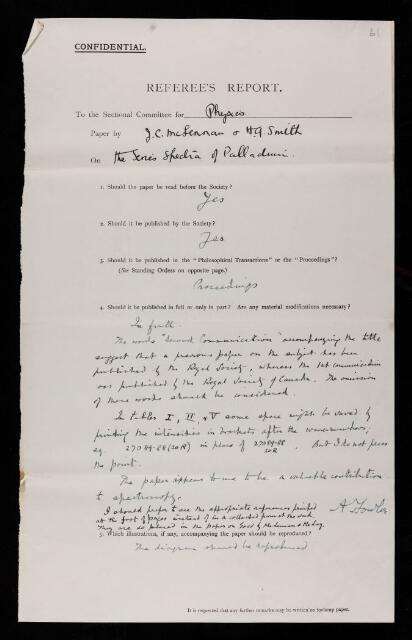 61
CONFIDENTIAL.
REFEREE'S REPORT.
To the Sectional Committee for Physics
Paper by J.C. McLennan & H.G. Smith
On the Series Spectra of Palladium.
1. Should the paper be read before the Society?
Yes
2. Should it be published by the Society?
Yes
3. Should it be published in the "Philosophical Transactions" or the "Proceedings"?
(See Standing Orders on opposite page.)
Proceedings
4. Should it be published in full or only in part? Are any material modifications necessary?
In full.
The words "Second Communication" accompanying the title
suggest that a previous paper on the subject has been
published by the Royal Society, whereas the 1st communication
was published by the Royal Society of Canada. The omission
of these words should be considered.
In tables I, II, & V some space might be saved by
printing the intensities in brackets after the wavenumbers,
eg. 27084.88 (20R) in place of 27084.88
20R. But I do not press
the point.
The paper appears to me to be a valuable contribution
to spectroscopy.
I should prefer to see the appropriate references printed
at the foot of pages instead of in a collected form at the end.
They are so placed in the paper on Gold by McLennan & McLay.
A Fowler
5. Which illustrations, if any, accompanying the paper should be reproduced?
The diagram should be reproduced
It is requested that any further remarks may be written on foolscap paper.